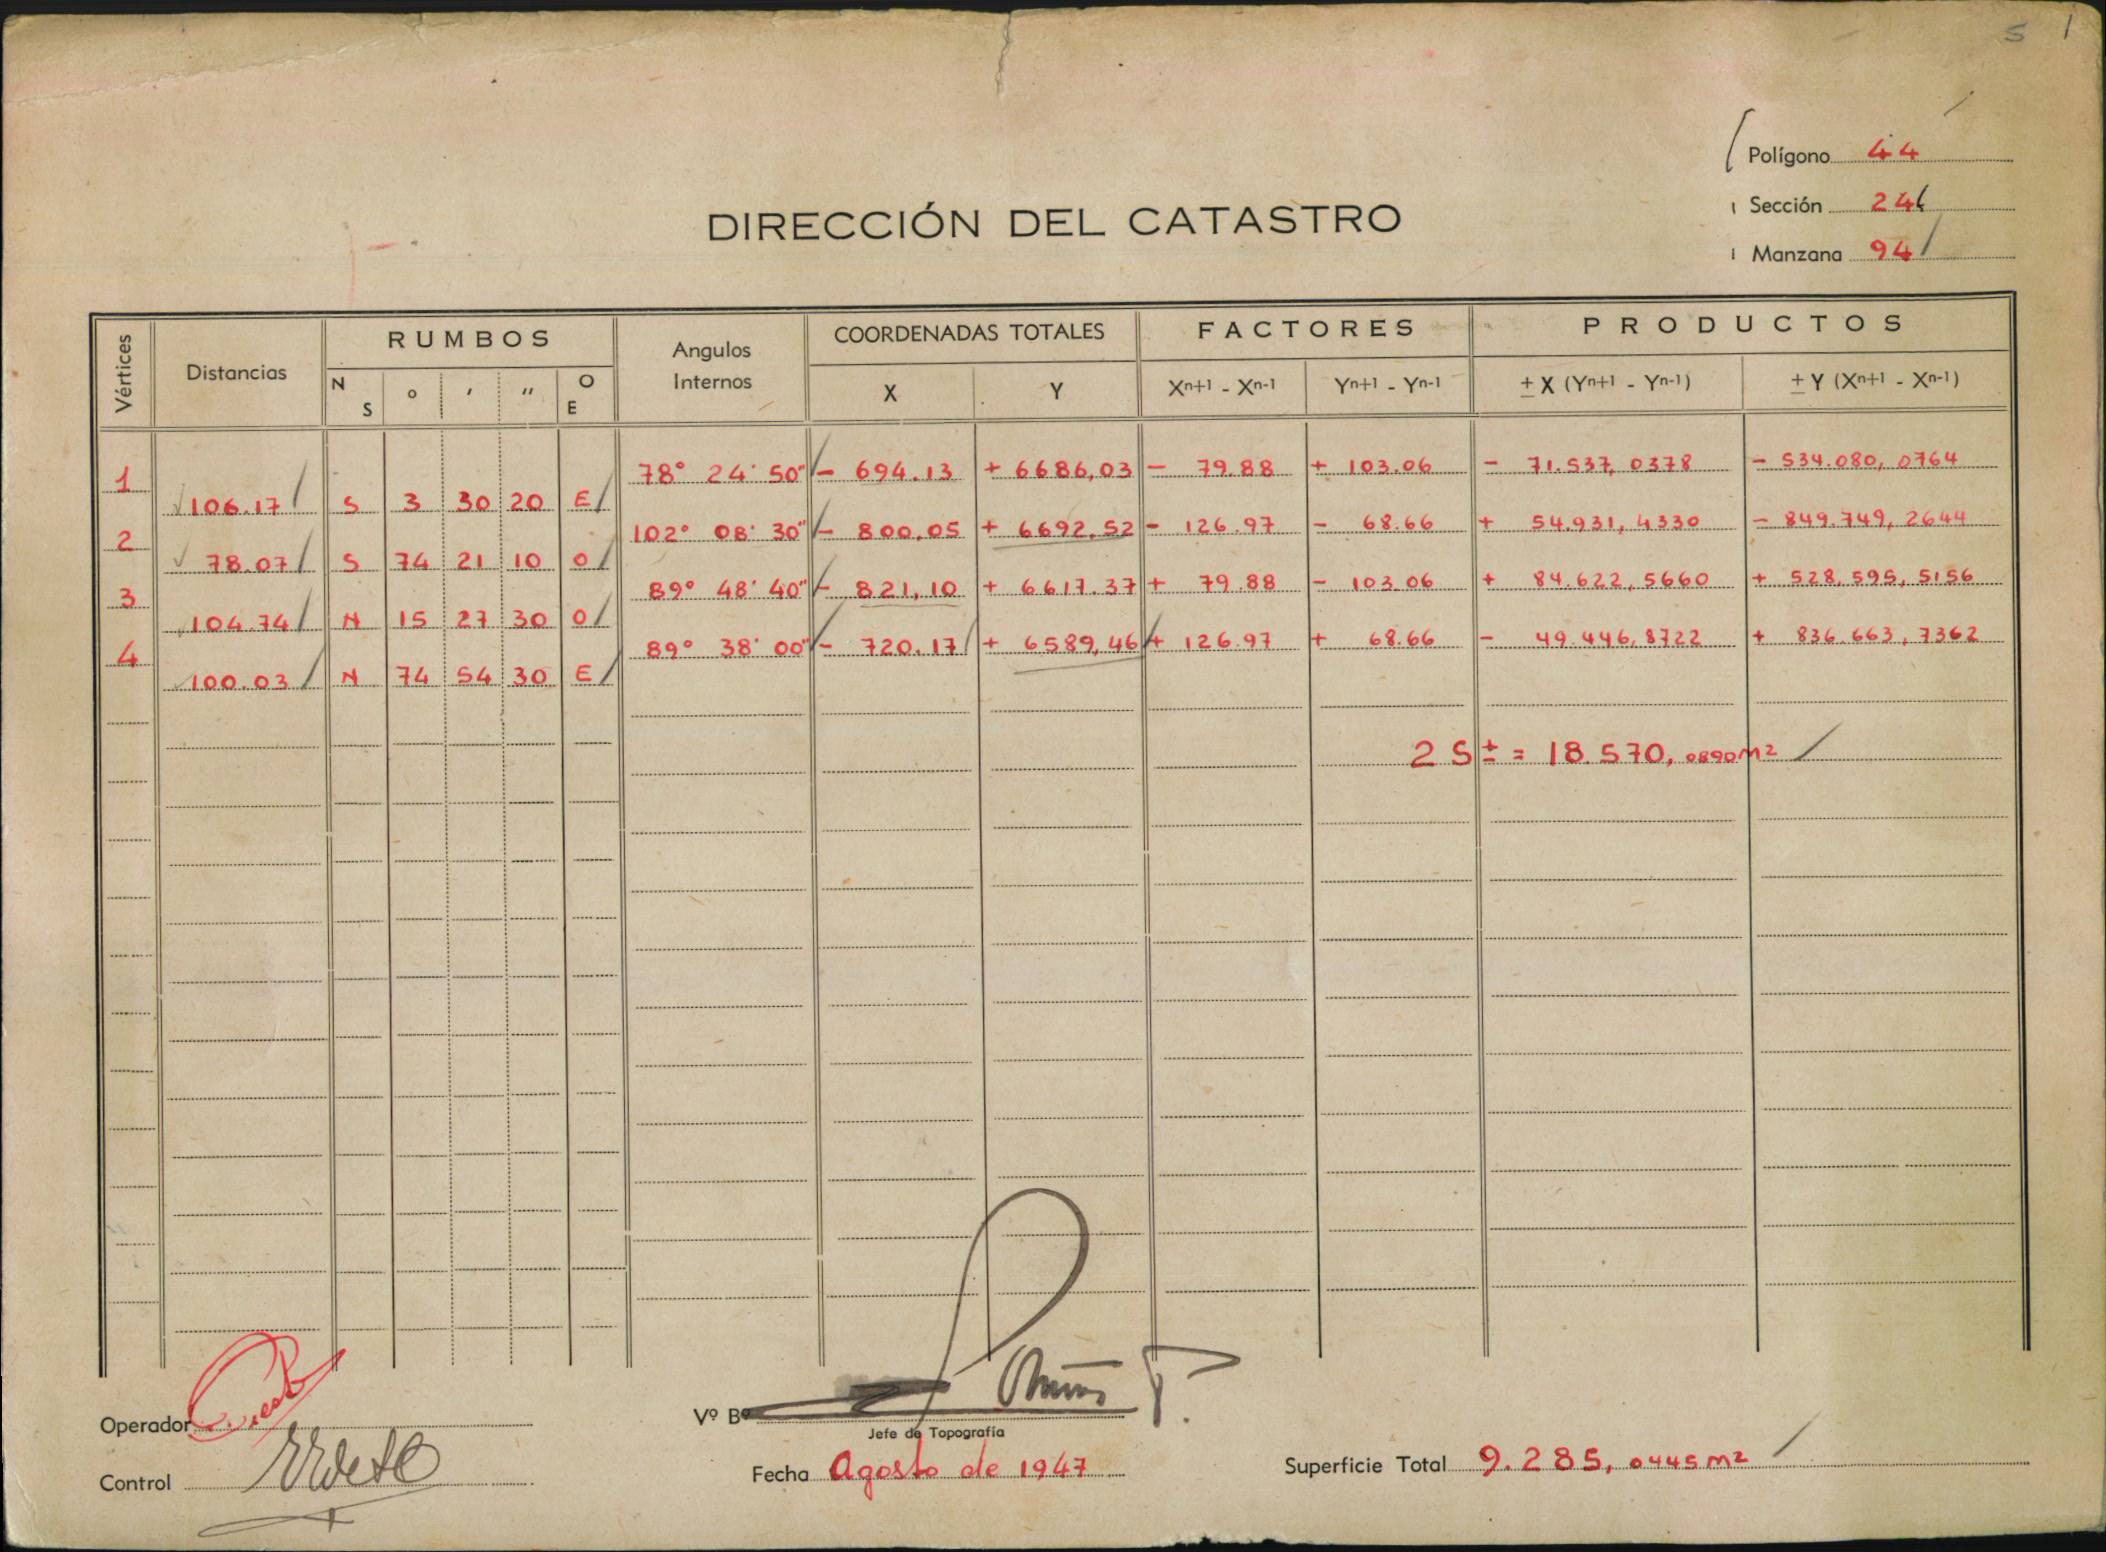 S 1
Polígono 44
Sección 24
Manzana 94
DIRECCIÓN DEL CATASTRO
Vértices Distancias RUMBOS Angulos Internos COORDENADAS TOTALES FACTORES PRODUCTOS
N S ° ′ ″ O E X Y Xn+1 - Xn-1 Yn+1 - Yn-1 ± X (Yn+1 - Yn-1) ± Y (Xn+1 - Xn-1)
1 78° 24' 50" - 694.13 + 6686,03 - 79.88 + 103.06 - 71.537,0378 - 534.080,0764
106.17 S 3 30 20 E
2 102° 08' 30" - 800,05 + 6692,52 - 126.97 - 68.66 + 54.931,4330 - 849.749,2644
78.07 S 74 21 10 O
3 89° 48' 40" - 821,10 + 6617.37 + 79.88 - 103.06 + 84.622,5660 + 528.595,5156
104.74 N 15 27 30 O
4 89° 38' 00" - 720.17 + 6589,46 + 126.97 + 68.66 - 49.446,8722 + 836.663,7362
100.03 N 74 54 30 E
2 S ± = 18.570,0890 m2
Operador
Vº Bº
Jefe de Topografía
Control
Fecha Agosto de 1947
Superficie Total 9.285,0445 m2